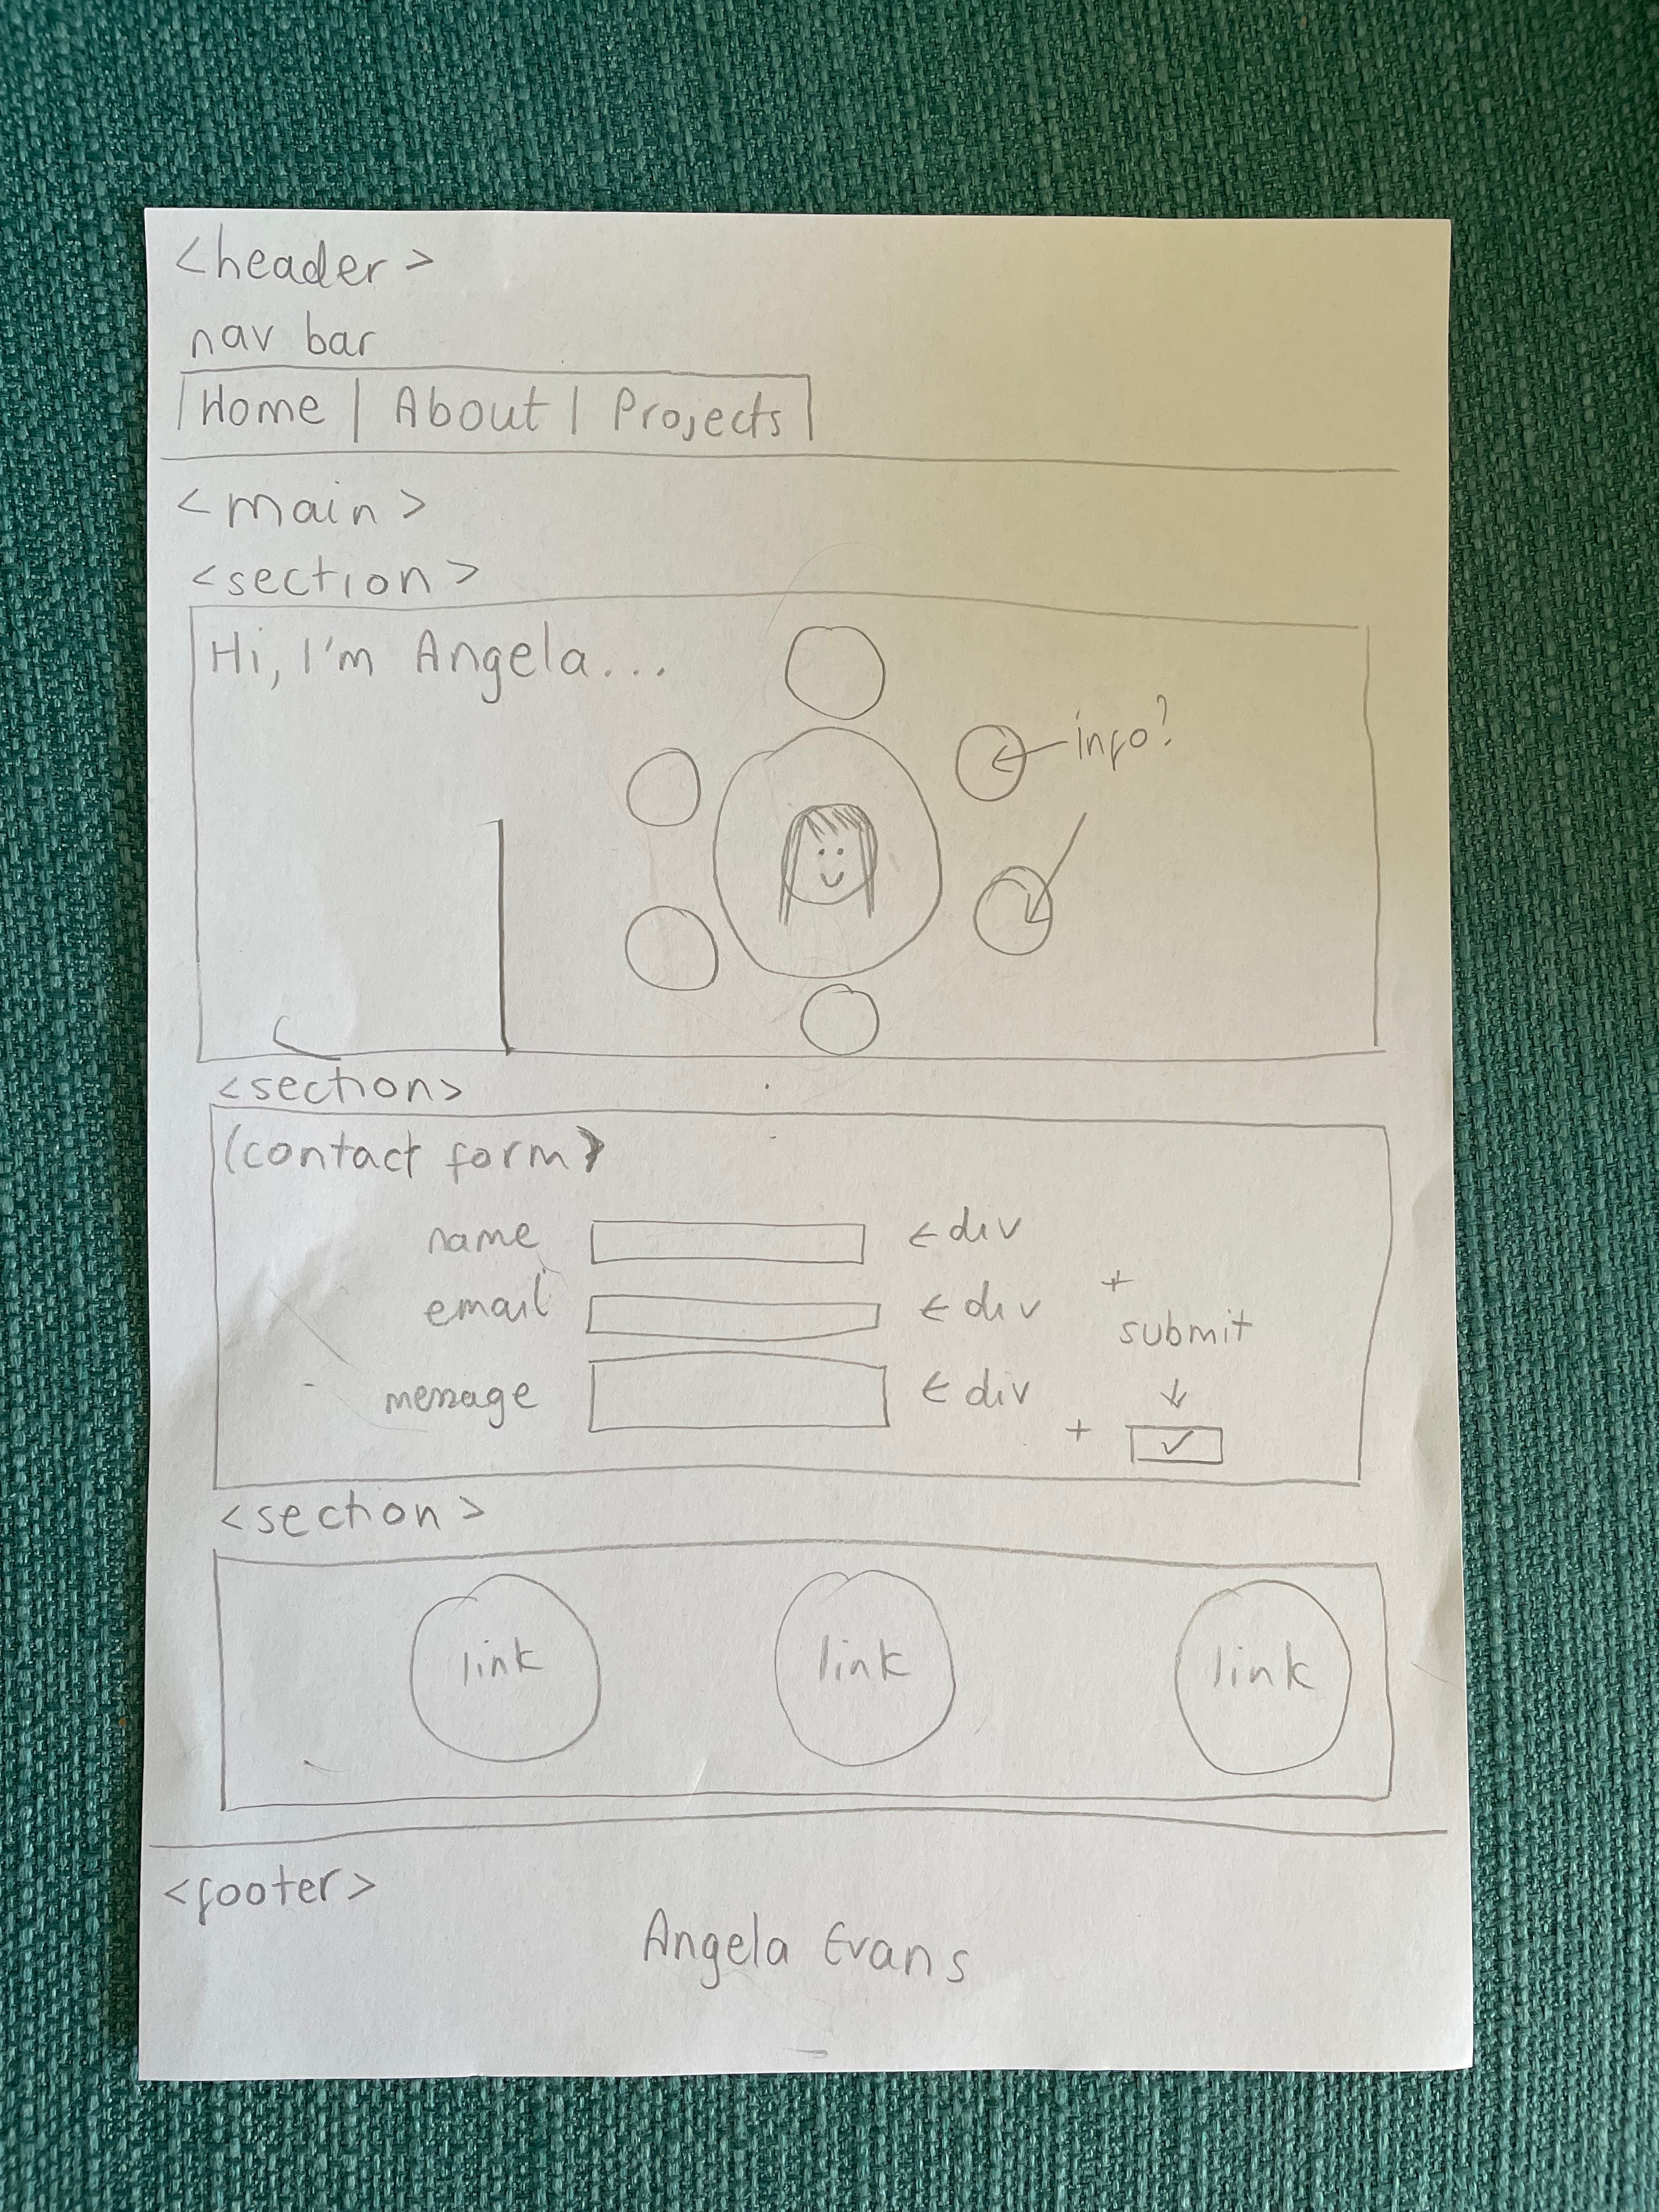 <header>
nav bar
| Home | About | Projects |
<main>
<section>
Hi, I'm Angela...
info?
<section>
(contact form)
name ← div
email ← div
+
submit
message ← div ↓
+ ✓
<section>
link link link
<footer>
Angela Evans